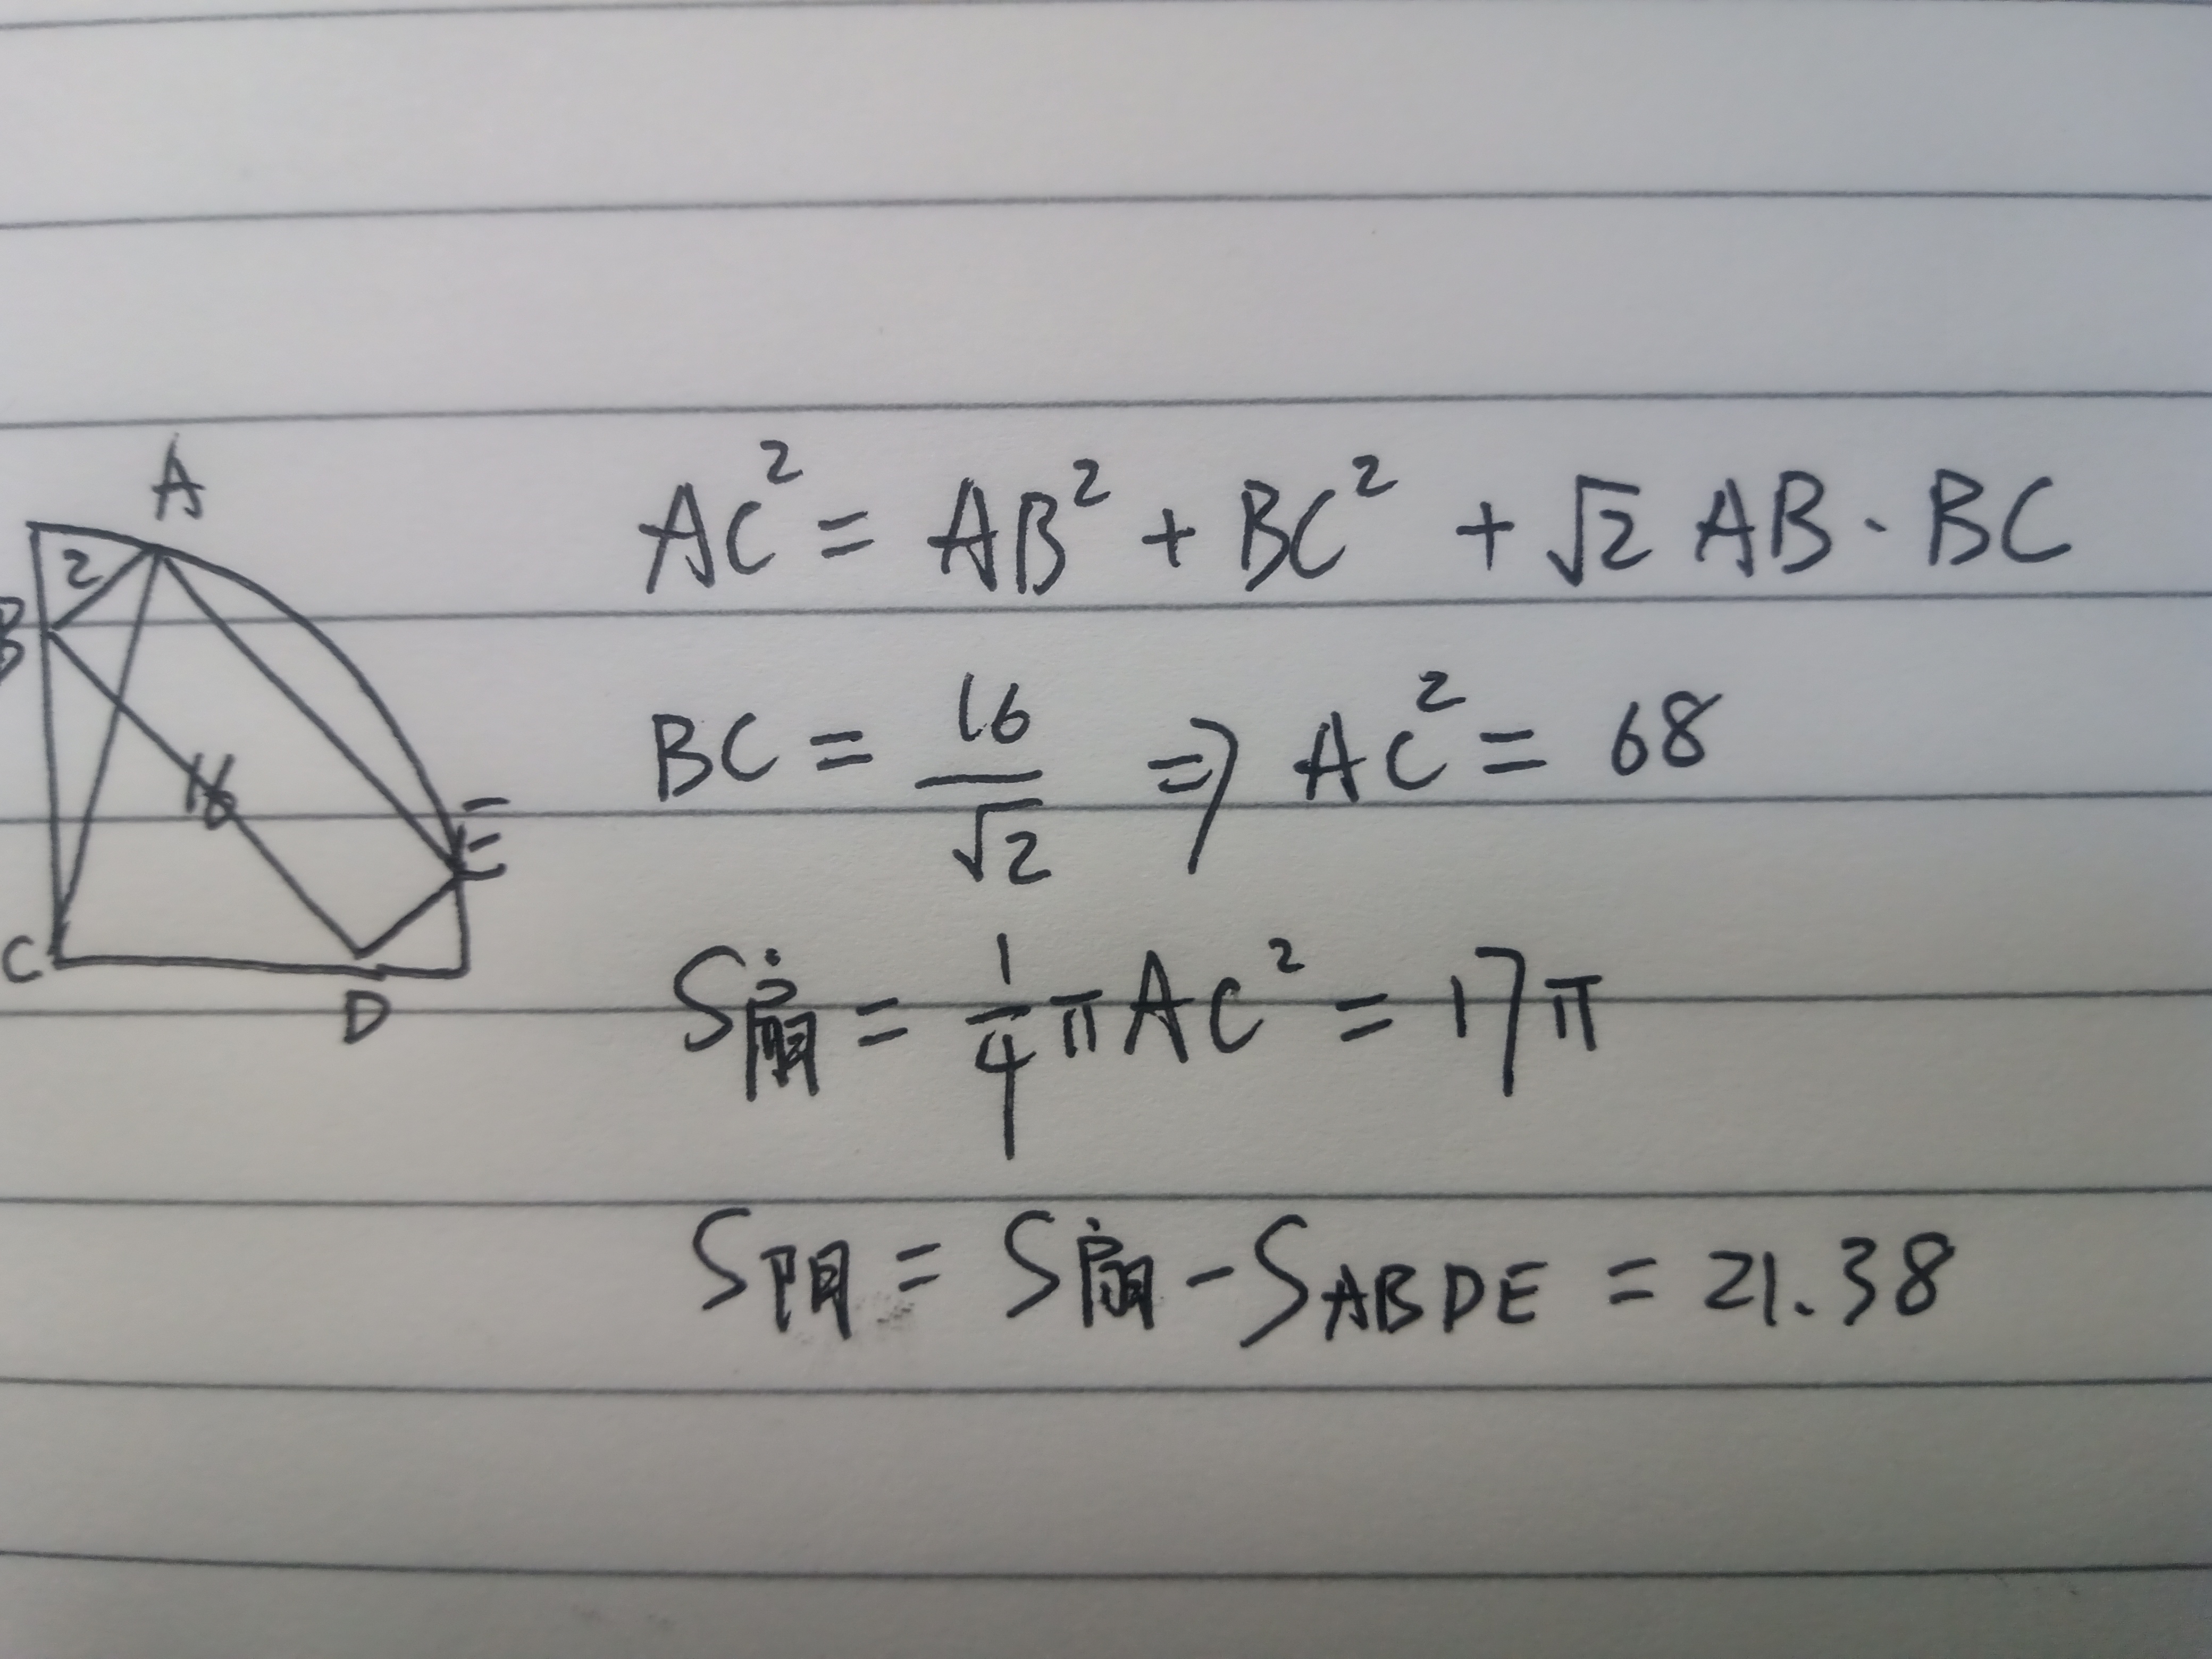 A
2
B
16
E
C
D
AC² = AB² + BC² + √2 AB · BC
BC = 16/√2 ⇒ AC² = 68
S扇 = 1/4 π AC² = 17π
S阴 = S扇 - S ABDE = 21.38